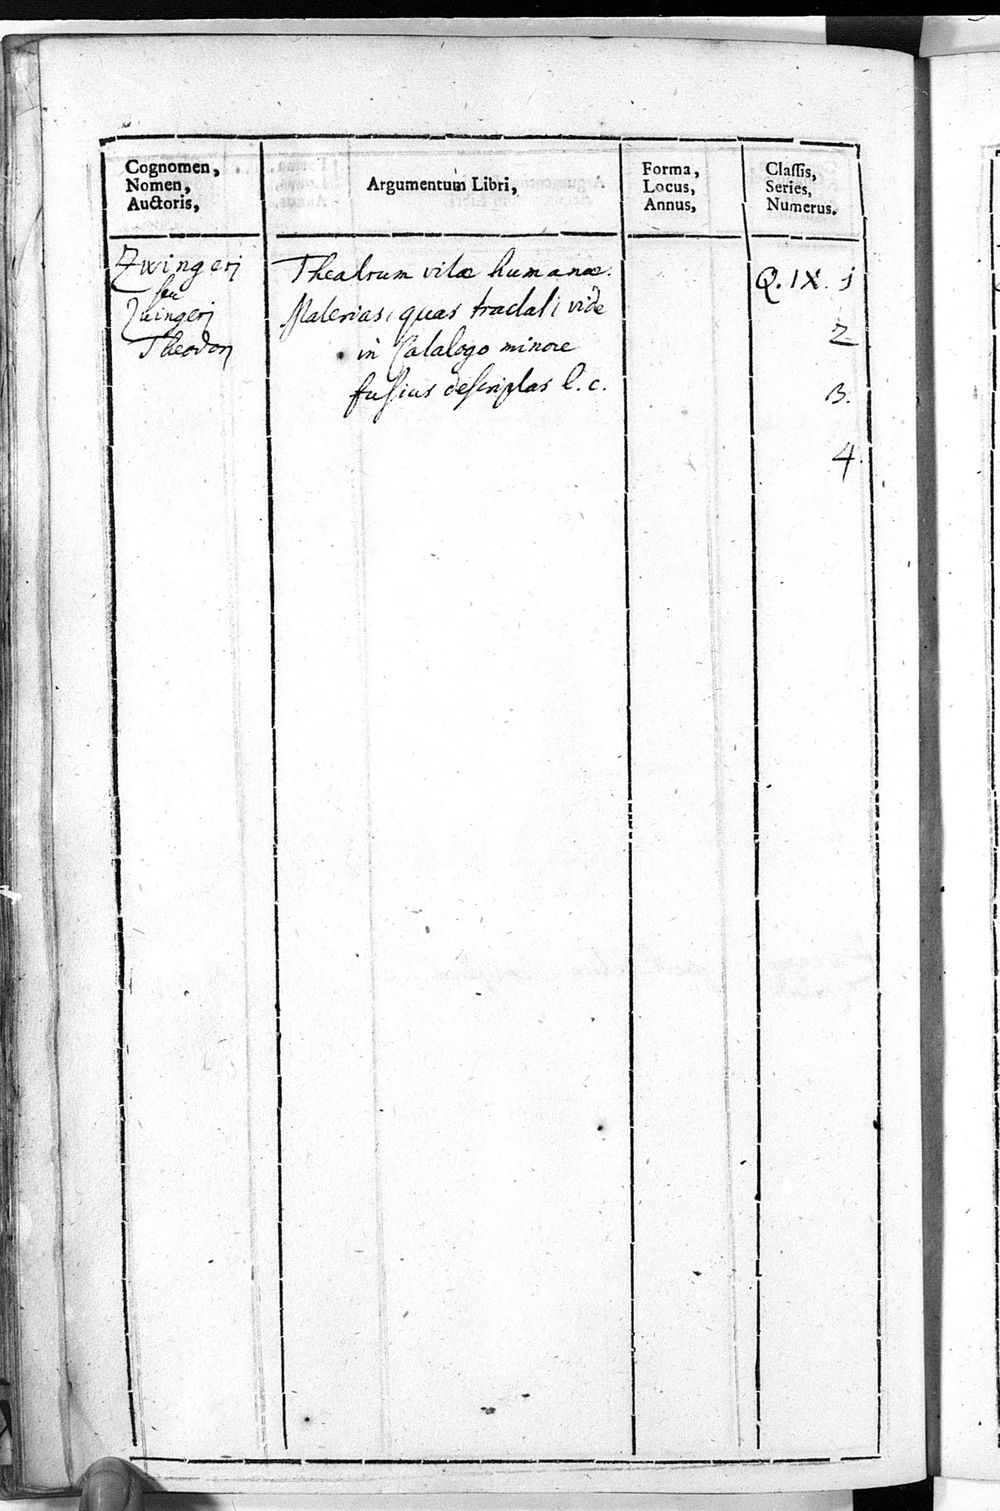 Cognomen,
Nomen,
Auctoris,
Argumentum Libri,
Forma,
Locus,
Annus,
Classis,
Series,
Numerus.
Zwingerj
seu
Zuingerj
Theodorj
Theatrum vitæ humanæ.
Materias, quas tractat, vide
in Catalogo minore
fusius descriptas l. c.
Q. IX. j
2
3.
4.